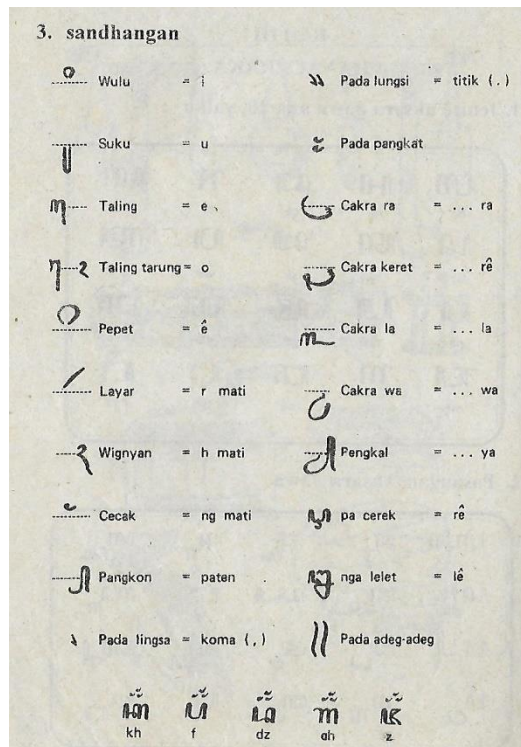 3. sandhangan
ꦶ Wulu = i
ꦸ Suku = u
ꦺ Taling = e
ꦺꦴ Taling tarung = o
ꦼ Pepet = ê
ꦂ Layar = r mati
ꦃ Wignyan = h mati
ꦁ Cecak = ng mati
꧀ Pangkon = paten
꧈ Pada lingsa = koma (,)
꧉ Pada lungsi = titik (.)
꧇ Pada pangkat
ꦿ Cakra ra = ... ra
ꦽ Cakra keret = ... rê
꧀ꦭ Cakra la = ... la
꧀ꦮ Cakra wa = ... wa
ꦾ Pengkal = ... ya
ꦉ pa cerek = rê
ꦊ nga lelet = lê
꧋ Pada adeg-adeg
ꦏ꦳ ꦥ꦳ ꦢ꦳ ꦒ꦳ ꦗ꦳
kh f dz ah z